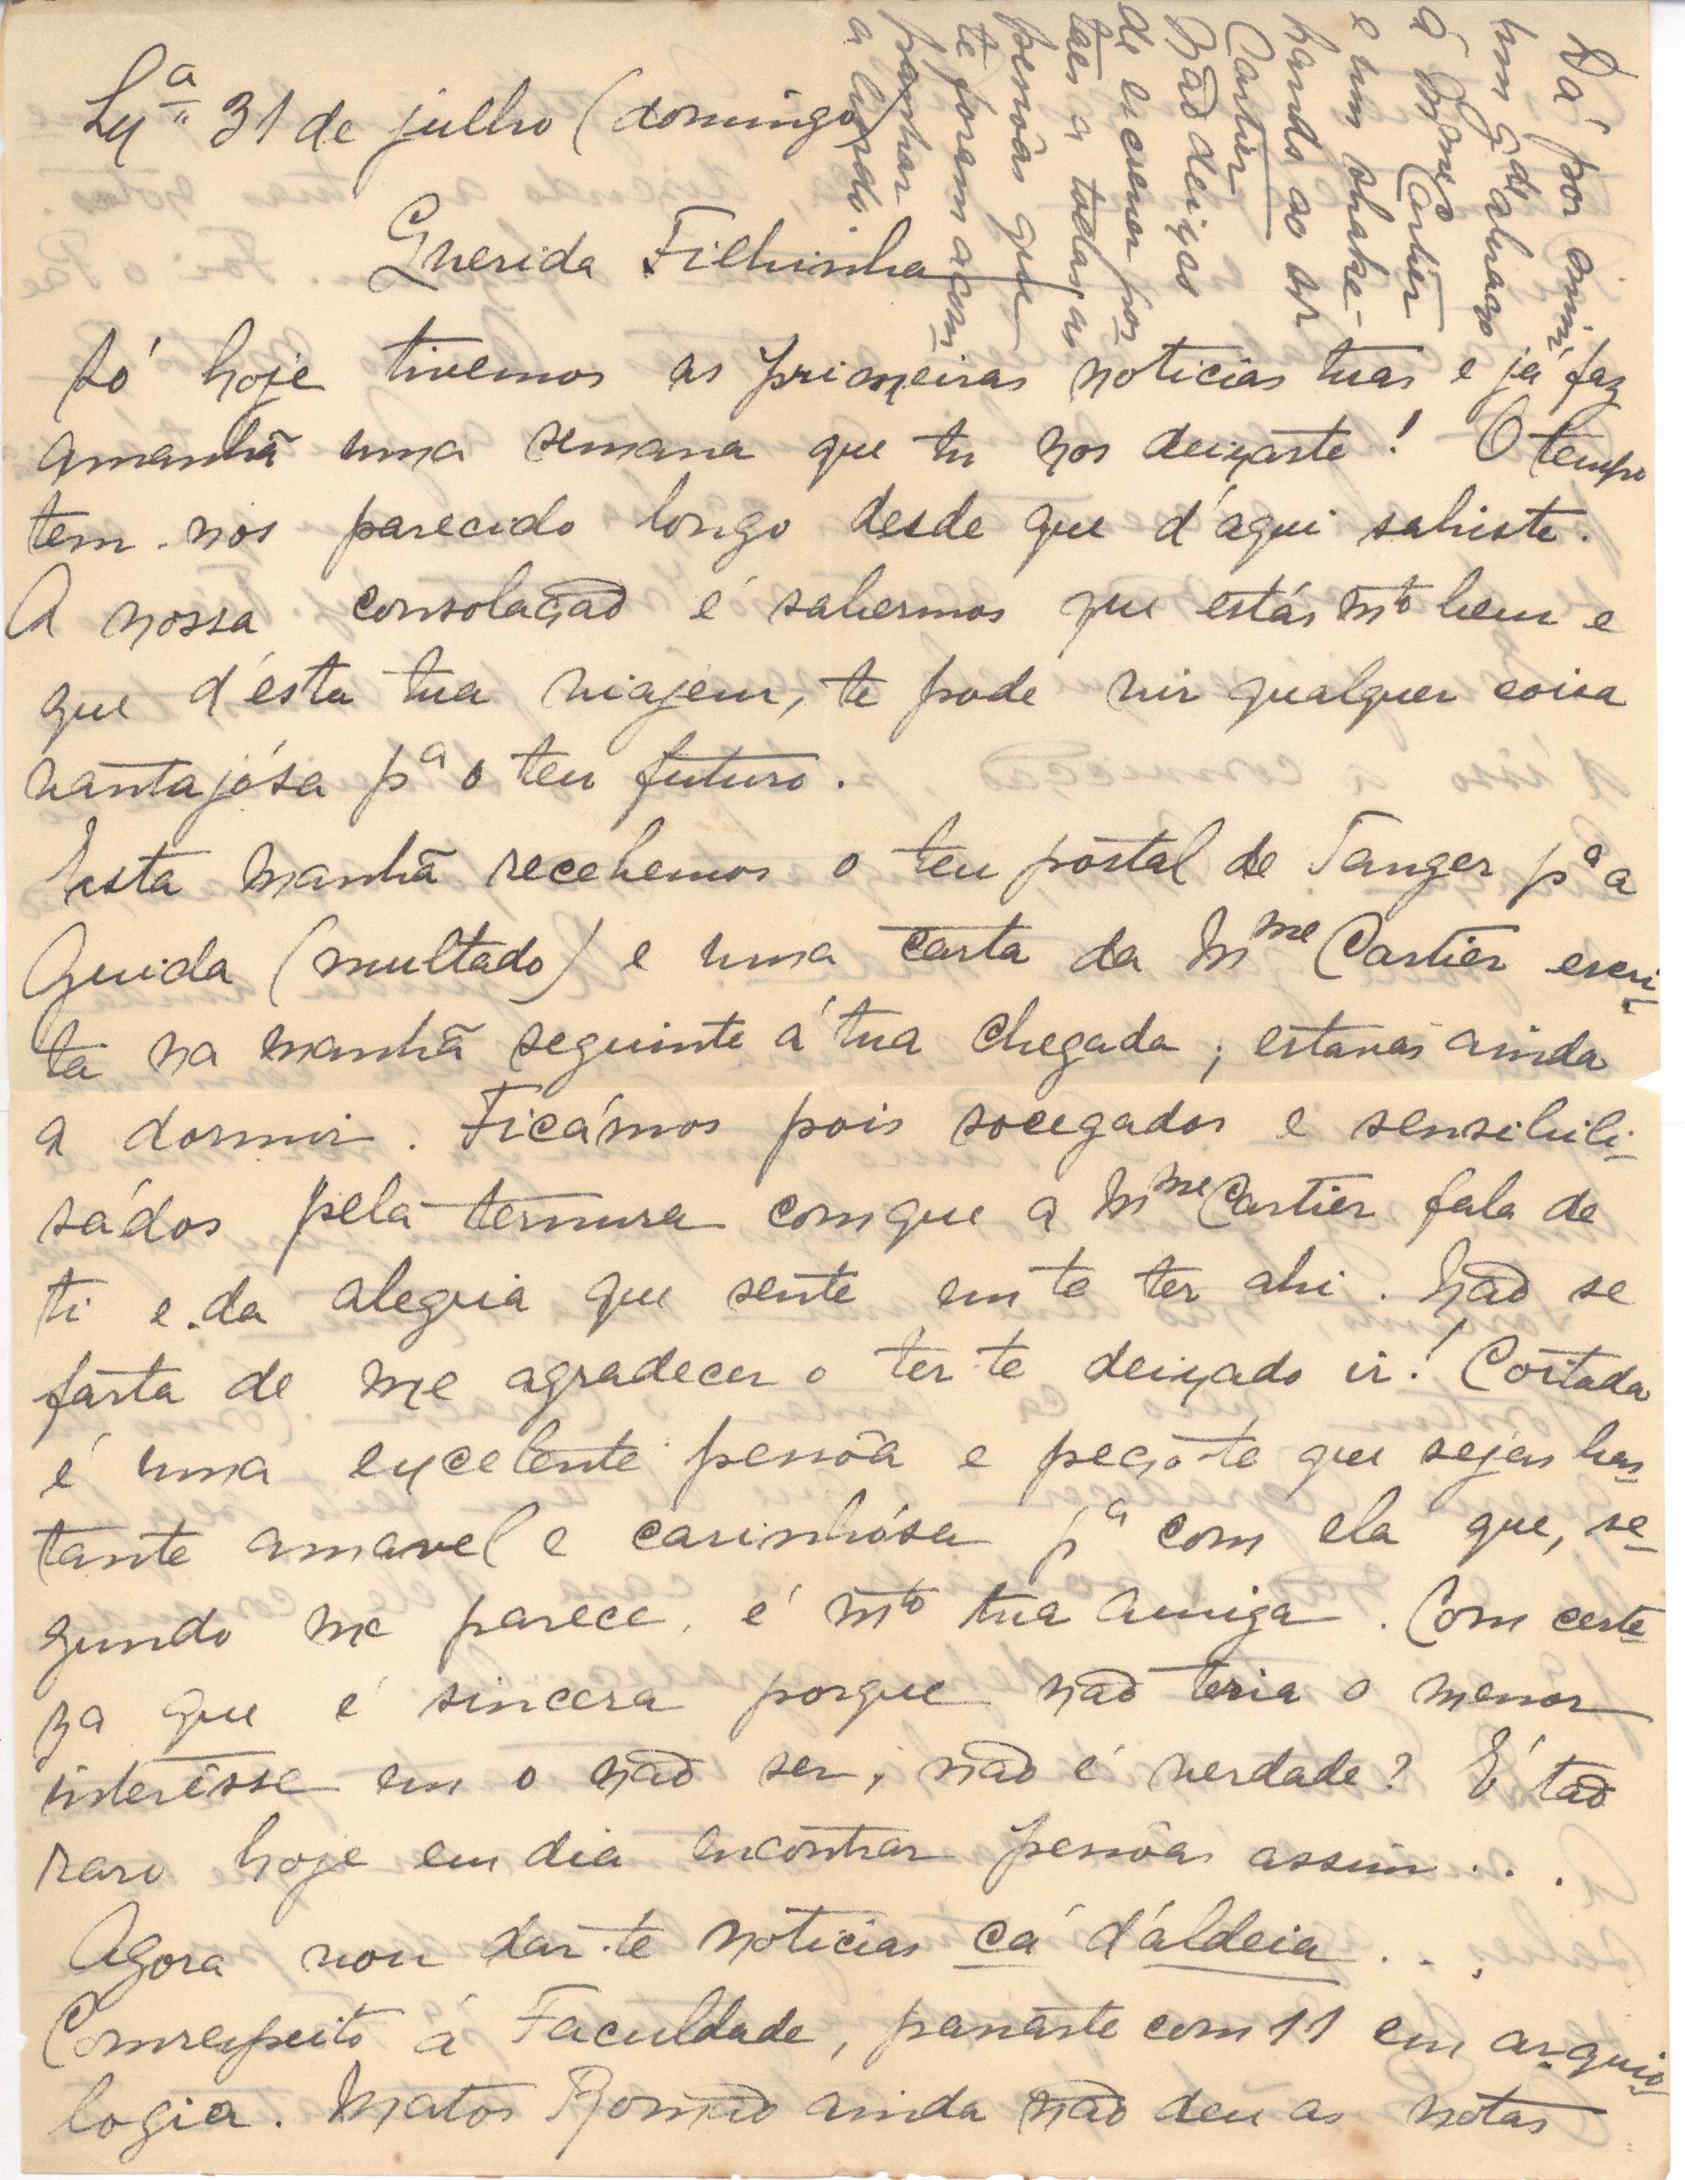 Lxª 31 de julho (domingo)
Querida Filhinha
Só hoje tivemos as primeiras noticias tuas e já faz
amanhã uma semana que tu nos deixaste! O tempo
tem-nos parecido longo desde que d'aqui sahiste.
A nossa consolação é sabermos que estás mto bem e
que d'ésta tua viajem, te pode vir qualquer coisa
vantajósa pª o teu futuro.
Esta manhã recebemos o teu postal de Tanger pª a
Guida (multado) e uma carta da Mme Cartier escri-
ta na manhã seguinte á tua chegada; estavas ainda
a dormir. Ficámos pois socegados e sensibili-
sádos pela ternura com que a Mme Cartier fala de
ti e da alegria que sente em te ter ahi. Não se
farta de me agradecer o ter-te deixado ir! Coitada
é uma excelente pessôa e peço-te que sejas bas-
tante amavel e carinhósa pª com ela que, se-
gundo me parece, é mto tua amiga. Com certe-
za que é sincera porque não teria o menor
interêsse em o não ser, não é verdade? É tão
raro hoje em dia encontrar pessôas assim...
Agora vou dar-te noticias cá d'áldeia...
Com respeito á Faculdade, passáste com 11 em arquio-
logia. Matos Romão ainda não deu as notas
Dá por mim
um gde abraço
á Mme Cartier
e um shake-
hands ao sr
Cartier
Não deixes
de escrever pos
taes a todas as
pessôas que
te foram acom
panhar
a bordo